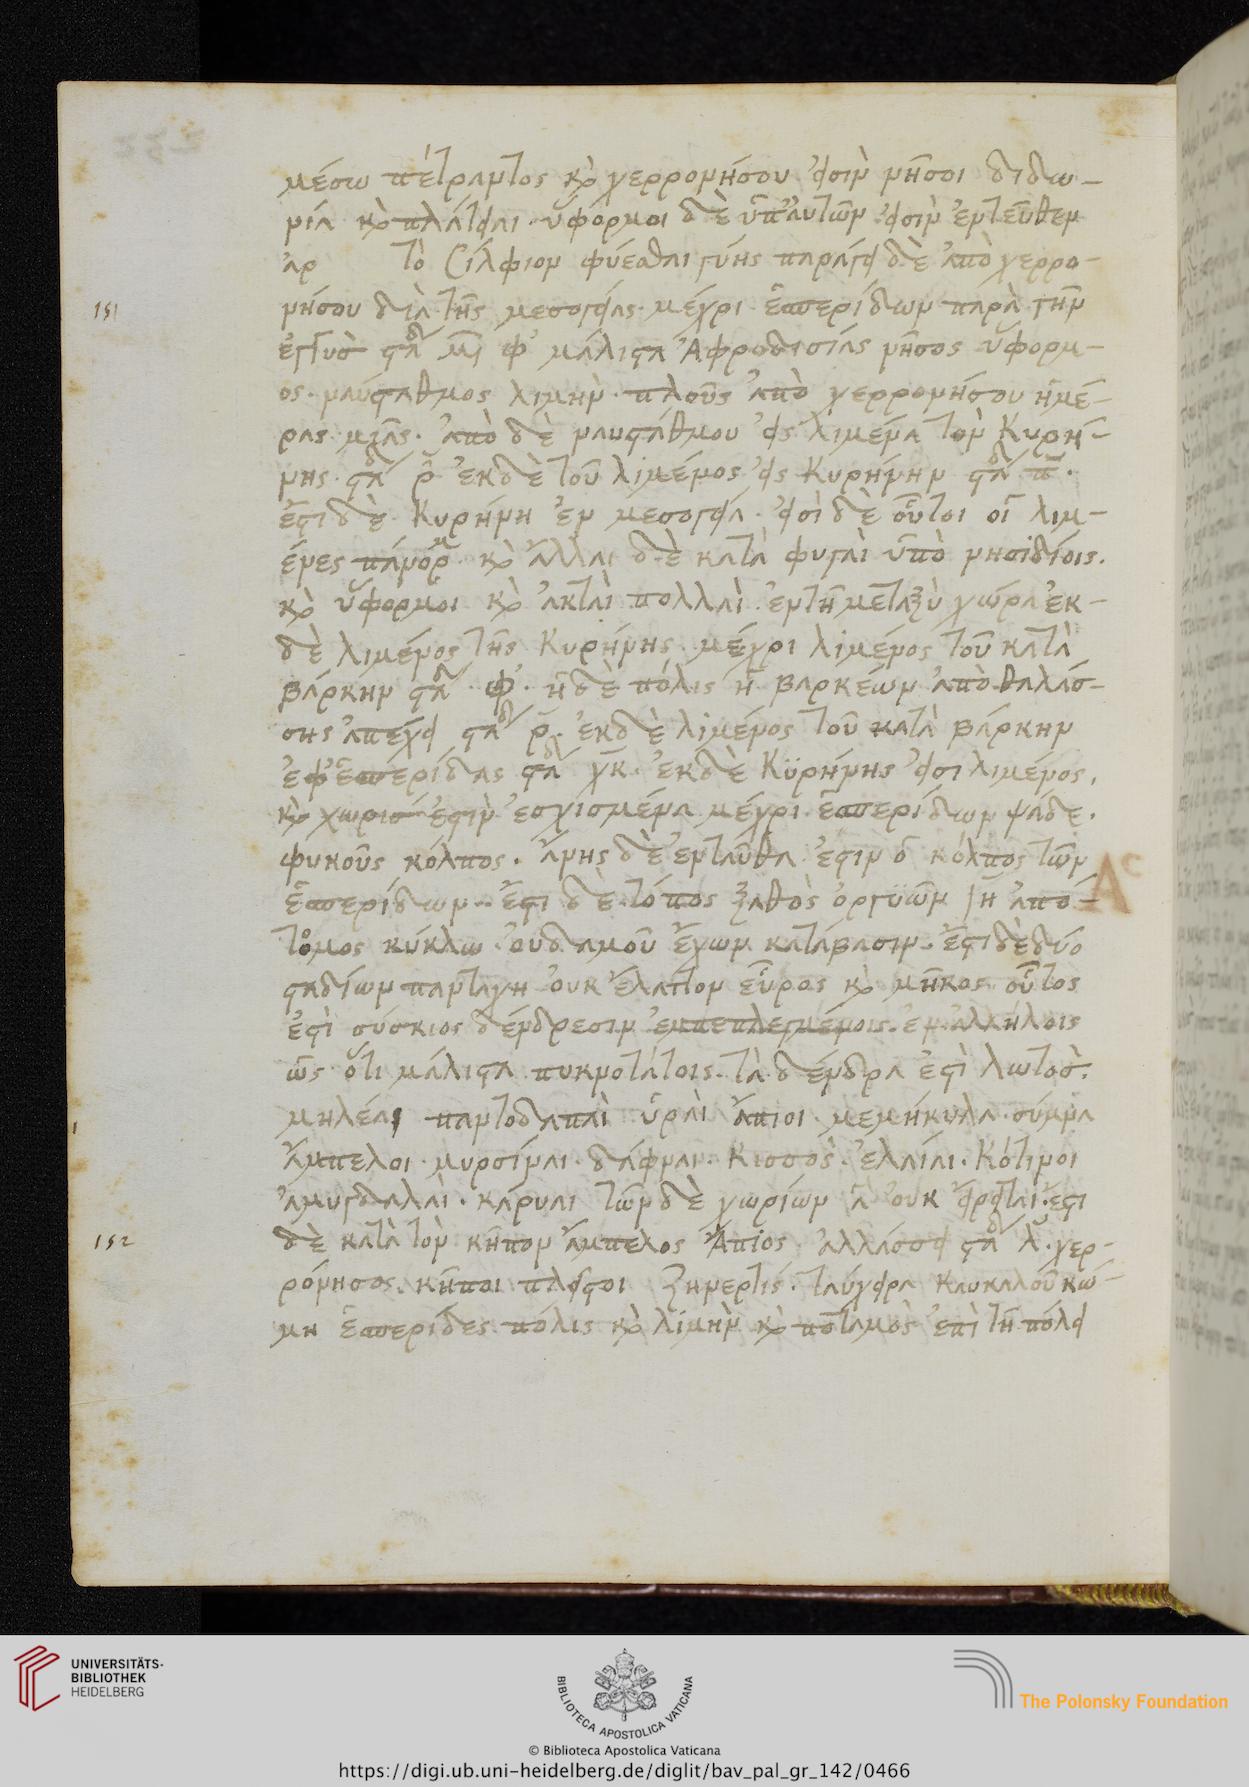 μέσω πέτραντος κὶ χερρονήσου εἰσὶν νῆσοι ἀϊδω-
νία κὶ πλάτειαι· ὕφορμοι δὲ ὑπ' αὐτῶν εἰσὶν ἐντεῦθεν
ἂρ τὸ Σίλφιον φύεσθαι γύης παράγει δὲ ἀπὸ χερρο-
151
νήσου διὰ τῆς μεσογείας· μέχρι ἑσπερίδων παρὰ γῆν
ἐγγυσ σταδ μῖ φ' μάλιστα Ἀφροδισίας νῆσος ὕφορμ-
ος· ναύσταθμος λιμὴν· πλοῦς ἀπὸ χερρονήσου ἡμέ-
ρας μιᾶς· ἀπὸ δὲ ναυστάθμου εἰς λιμένα τὸν Κυρή-
νης· σταδ ρ̄ ἐκδὲ τοῦ λιμένος εἰς Κυρήνην σταδ π̄·
ἔστι δὲ Κυρήνη ἐν μεσογεία· εἰσὶ δὲ οὗτοι οἱ λιμ-
ένες πάνορμ· κὶ ἄλλαι δὲ καταφυγαὶ ὑπὸ νησιδίοις·
κὶ ὕφορμοι κὶ ἀκταὶ πολλαὶ· ἐν τῆ μεταξὺ χώρα ἐκ-
δὲ λιμένος τῆς Κυρήνης μέχρι λιμένος τοῦ κατὰ
βάρκην σταδ· φ̄· ἡ δὲ πόλις ἡ βαρκέων ἀπὸ θαλάσ-
σης ἀπέχει σταδ ρ̄· ἐκδὲ λιμένος τοῦ κατὰ βάρκην
ἐφ' ἑσπερίδας σταδ χκ· ἐκδὲ Κυρήνης εἰσι λιμένος,
κὶ χωρισ ἐστιν ἐσχισμένα μέχρι ἑσπερίδων ψάδε·
φυκοῦς κόλπος· ἄνης δὲ ἐνταῦθα ἐστιν ὁ κόλπος τῶν
ἑσπερίδων· ἔστι δὲ τόπος βαθὺς ὀργυιῶν ιη ἀπό-
Ac
τομος κύκλω· οὐδαμοῦ ἔχων κατάβασιν· ἔστι δὲ δύο
σταδίων πανταχῆ οὐκ ἔλαττον εὖρος κὶ μῆκος οὗτος
ἐστὶ σύσκιος δένδρεσιν ἐμπεπλεγμένοις· ἐν ἀλλήλοις
ὡς ὅτι μάλιστα πυκνοτάτοις· τὰ δένδρα ἐστὶ λωτοσ·
μηλέαι παντοδαπαὶ ὑραὶ ἄπιοι μεμήκυλα· σύμνα
ἄμπελοι· μυρσίναι· δάφναι· Κισσὸς· ἐλαίαι· Κότινοι
ἀμυγδαλαὶ· κάρυαι τῶν δὲ χωρίων ἃ οὐκ εἴρεῖται· ἔστι
152
δὲ κατὰ τὸν κῆπον ἄμπελος Ἄπιος ἀλλάσσει σταδ λ̄· χερ-
ρόνησος· κῆποι πλεῖστοι ζηνερτίς· ταύχειρα καυκαλοῦ κώ-
μη ἑσπερίδες πόλις κὶ λίμην κὶ ποταμὸς ἐπὶ τῆ πόλει
UNIVERSITÄTS-
BIBLIOTHEK
HEIDELBERG
BIBLIOTECA APOSTOLICA VATICANA
The Polonsky Foundation
© Biblioteca Apostolica Vaticana
https://digi.ub.uni-heidelberg.de/diglit/bav_pal_gr_142/0466